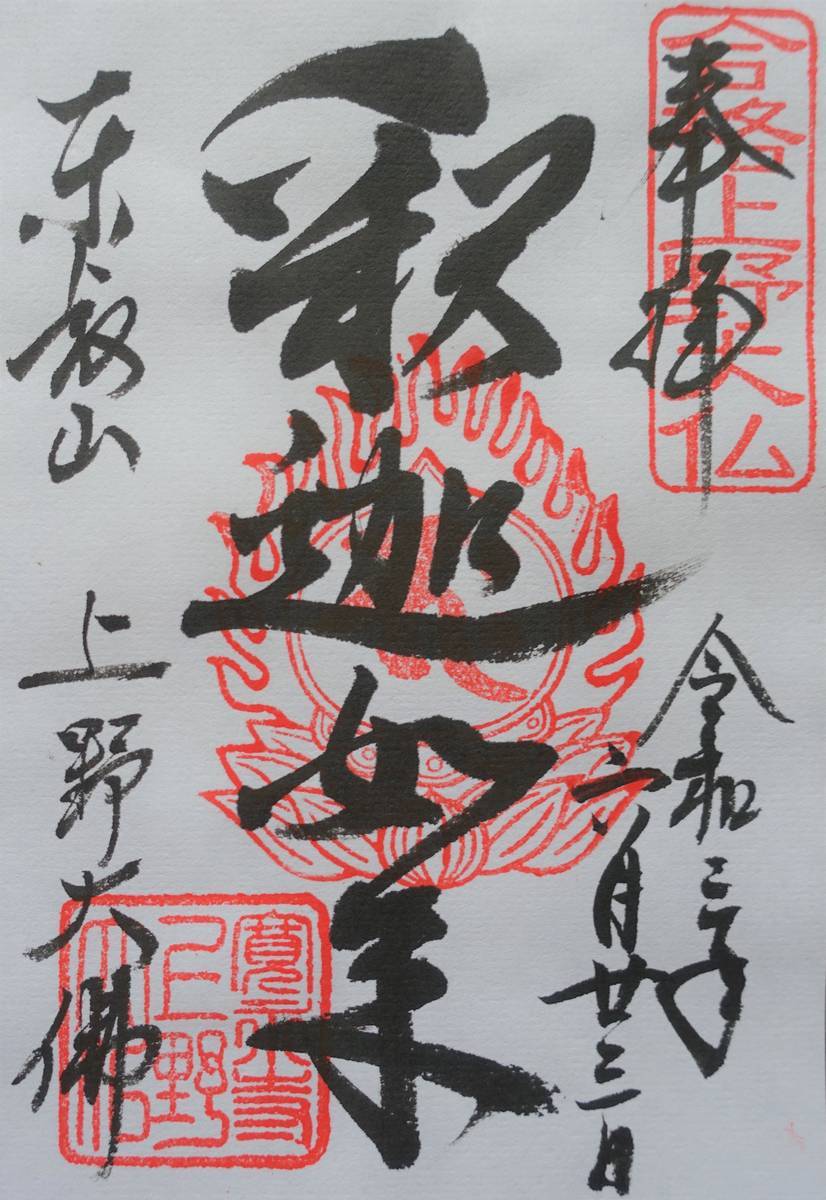 合格上野大仏
奉拝
令和三年
六月廿三日
釈迦如来
東叡山 上野大佛
寛永寺
上野